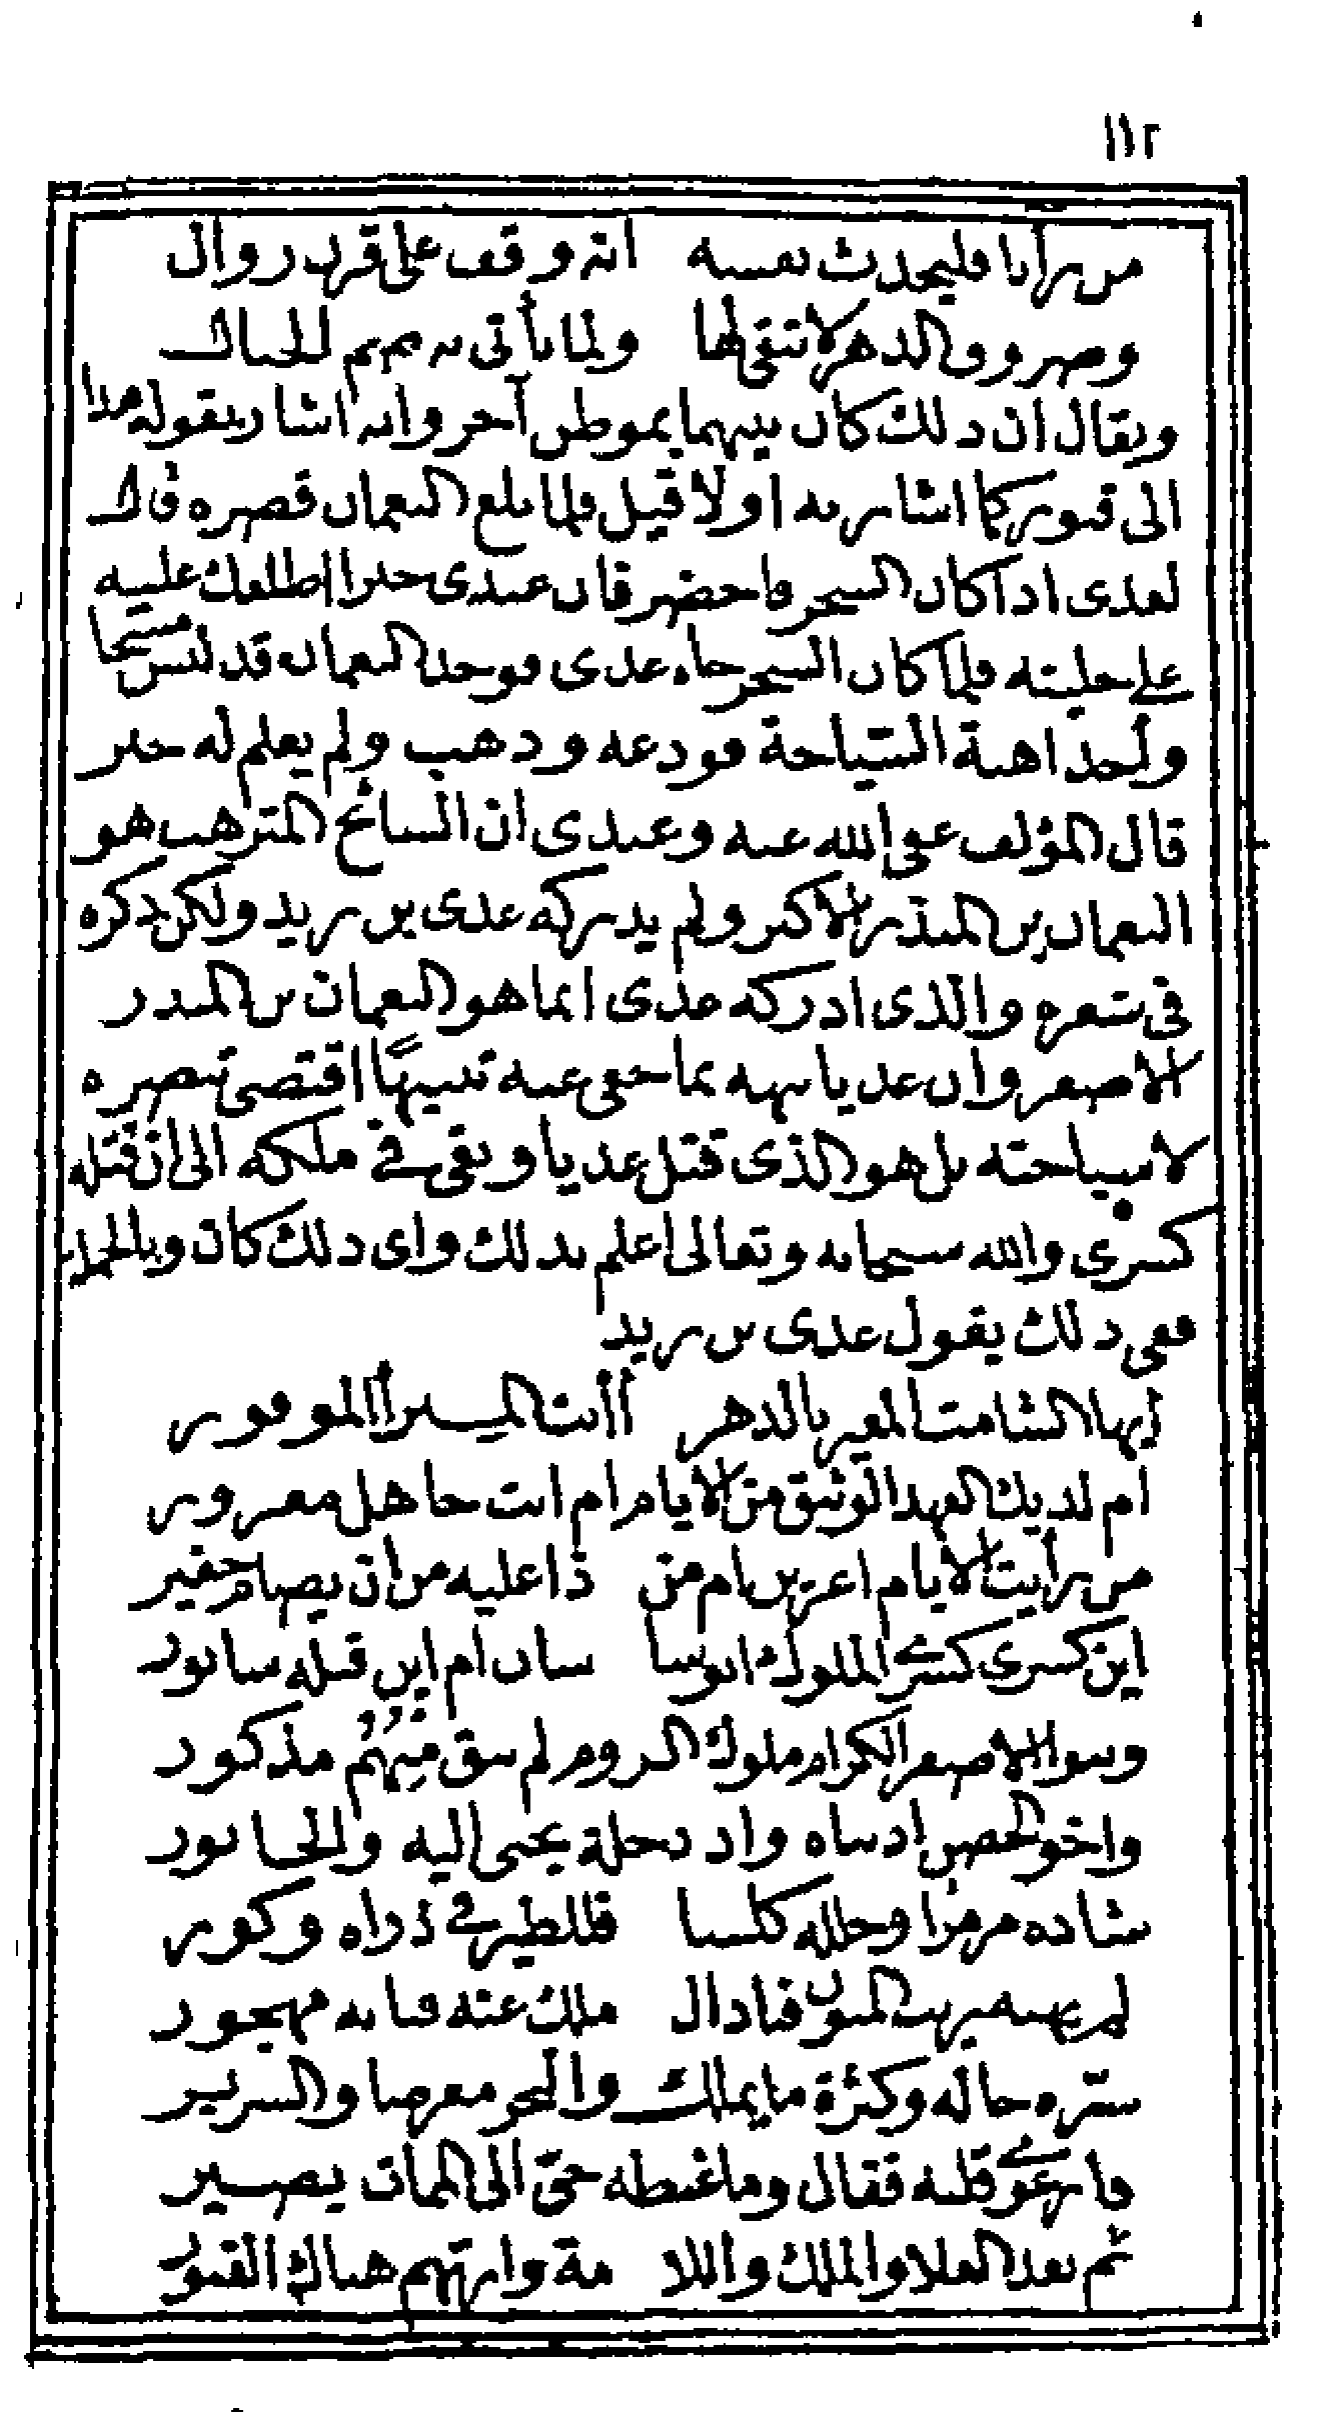 ١١٢
من رآنا فليحدث نفسه انه وقف على قرب زوال
وصروف الدهر لا تبقى لها ولما تأتى به صم الجبال
ويقال ان ذلك كان بينهما بموطن آخر وانه اشار بقوله هذا
الى قبور كما اشار به اولا قيل فلما بلغ النعمان قصره قال
لعدى اذا كان السحر فاحضر فان عندى خبرا اطلعك عليه
على جليته فلما كان السحر جاه عدى فوجد النعمان قد لبس مسحا
واخذ اهبة السياحة فودعه وذهب ولم يعلم له خبر
قال المؤلف عفى الله عنه وعندى ان السائح المترهب هو
النعمان بن المنذر الاكبر ولم يدركه عدى بن زيد ولكن ذكره
فى شعره والذى ادركه عدى انما هو النعمان بن المنذر
الاصغر وان عديا نبهه بما خفى عنه تنبيهًا اقتضى تنصره
لا سياحته بل هو الذى قتل عديا وبقى فى ملكه الى ان قتله
كسرى والله سبحانه وتعالى اعلم بذلك واى ذلك كان وبالجملة
ففى ذلك يقول عدى بن زيد
ايها الشامت المعير بالدهر أأنت المبرأ الموفور
ام لديك العهد الوثيق من الايام ام انت جاهل مغرور
من رأيت الايام اعزبن ام من ذا عليه من ان يضام خفير
اين كسرى كسرى الملوك انوسا سان ام اين قبله سابور
وبنوا الاصفر الكرام ملوك الروم لم يبق منهم مذكور
واخو الحضر اذ بناه واذ دجلة يجبى اليه والخابور
شاده مرمرا وجلله كلسا فللطير فى ذراه وكور
لم يهبه ريب المنون فبادال ملك عنه فبابه مهجور
سره حاله وكثرة ما يملك والبحر معرضا والسرير
فارعوى قلبه فقال وما غبطة حى الى الممات يصير
ثم بعد الفلاح والملك والا مة وارتهم هناك القبور